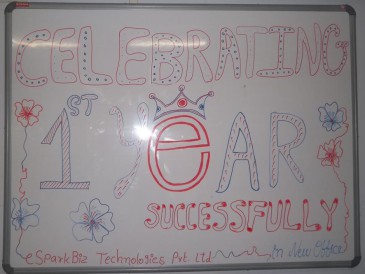 CELEBRATING
1ST YeAR
SUCCESSFULLY
eSparkBiz Technologies Pvt Ltd in New Office